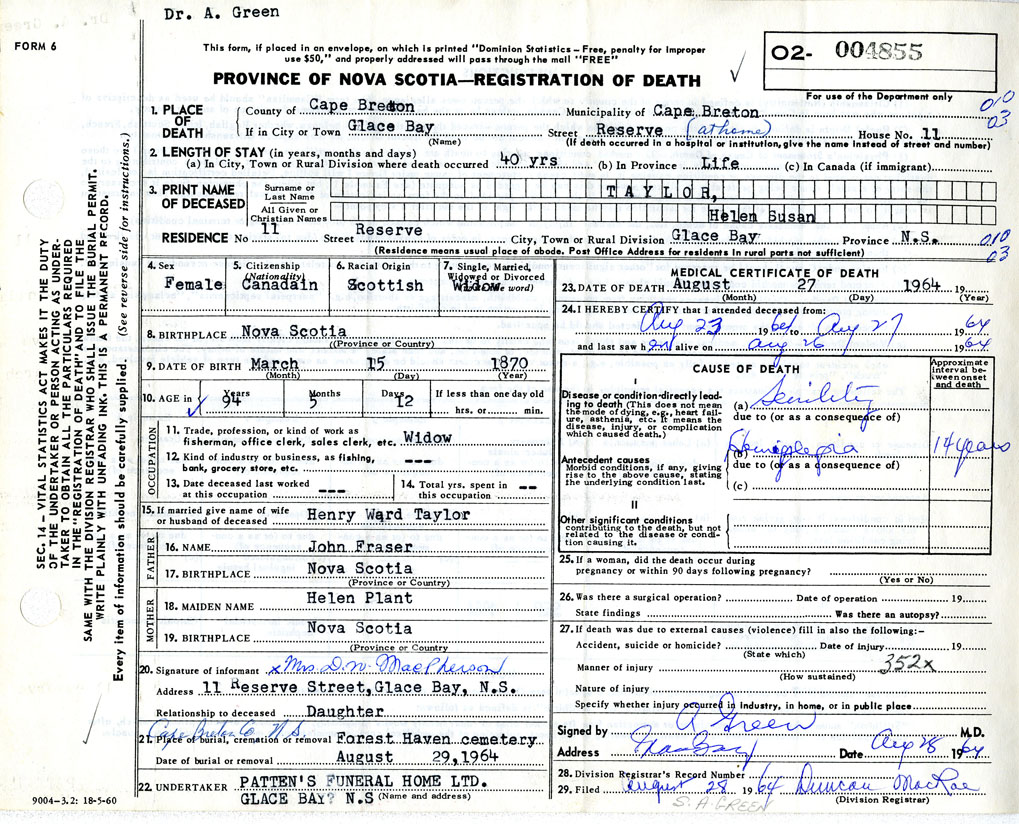 Dr. A. Green
FORM 6
This form, if placed in an envelope, on which is printed "Dominion Statistics – Free, penalty for improper
use $50," and properly addressed will pass through the mail "FREE"
PROVINCE OF NOVA SCOTIA—REGISTRATION OF DEATH
O2- 004855
For use of the Department only
010
03
1. PLACE OF DEATH
County of Cape Breton Municipality of Cape Breton
If in City or Town Glace Bay Street Reserve (at home) House No. 11
(Name) (If death occurred in a hospital or institution, give the name instead of street and number)
2. LENGTH OF STAY (in years, months and days)
(a) In City, Town or Rural Division where death occurred 40 yrs (b) In Province Life (c) In Canada (if immigrant)
3. PRINT NAME OF DECEASED
Surname or Last Name TAYLOR,
All Given or Christian Names Helen Susan
RESIDENCE No 11 Street Reserve City, Town or Rural Division Glace Bay Province N.S. 010
03
(Residence means usual place of abode. Post Office Address for residents in rural parts not sufficient)
4. Sex Female
5. Citizenship (Nationality) Canadain
6. Racial Origin Scottish
7. Single, Married, Widowed or Divorced (Write word) Widow
8. BIRTHPLACE Nova Scotia
(Province or Country)
9. DATE OF BIRTH March 15 1870
(Month) (Day) (Year)
10. AGE in Years 94 Months 5 Days 12 If less than one day old hrs. or min.
OCCUPATION
11. Trade, profession, or kind of work as
fisherman, office clerk, sales clerk, etc. Widow
12. Kind of industry or business, as fishing,
bank, grocery store, etc. ---
13. Date deceased last worked
at this occupation ---
14. Total yrs. spent in
this occupation --
15. If married give name of wife
or husband of deceased Henry Ward Taylor
FATHER
16. NAME John Fraser
17. BIRTHPLACE Nova Scotia
(Province or Country)
MOTHER
18. MAIDEN NAME Helen Plant
19. BIRTHPLACE Nova Scotia
(Province or Country
20. Signature of informant x Mrs. D. W. MacPherson
Address 11 Reserve Street, Glace Bay, N.S.
Relationship to deceased Daughter
Cape Breton Co N.S.
21. Place of burial, cremation or removal Forest Haven cemetery
Date of burial or removal August 29,1964
22. UNDERTAKER PATTEN'S FUNERAL HOME LTD.
GLACE BAY? N.S (Name and address)
9004-3.2: 18-5-60
MEDICAL CERTIFICATE OF DEATH
23. DATE OF DEATH August 27 1964
(Month) (Day) (Year)
24. I HEREBY CERTIFY that I attended deceased from:
Aug 23 1964 to Aug 27 1964
and last saw her alive on Aug 26 1964
CAUSE OF DEATH
Approximate interval between onset and death
I
Disease or condition directly leading to death (This does not mean the mode of dying, e.g., heart failure, asthenia, etc. It means the disease, injury, or complication which caused death.)
(a) Senility
due to (or as a consequence of)
Antecedent causes
Morbid conditions, if any, giving rise to the above cause, stating the underlying condition last.
(b) Hemiplegia 14 years
due to (or as a consequence of)
(c)
II
Other significant conditions
contributing to the death, but not related to the disease or condition causing it.
25. If a woman, did the death occur during
pregnancy or within 90 days following pregnancy?
(Yes or No)
26. Was there a surgical operation? Date of operation 19
State findings Was there an autopsy?
27. If death was due to external causes (violence) fill in also the following:–
Accident, suicide or homicide? Date of injury 19
(State which)
Manner of injury 352x
(How sustained)
Nature of injury
Specify whether injury occurred in industry, in home, or in public place
Signed by A Green M.D.
Address Glace Bay Date Aug 28 1964
28. Division Registrar's Record Number
29. Filed August 28 1964 Duncan MacRae
(Division Registrar)
S. A GREEN
SEC. 14 – VITAL STATISTICS ACT MAKES IT THE DUTY
OF THE UNDERTAKER OR PERSON ACTING AS UNDER-
TAKER TO OBTAIN ALL THE PARTICULARS REQUIRED
IN THE "REGISTRATION OF DEATH" AND TO FILE THE
SAME WITH THE DIVISION REGISTRAR WHO SHALL ISSUE THE BURIAL PERMIT.
WRITE PLAINLY WITH UNFADING INK. THIS IS A PERMANENT RECORD.
Every item of information should be carefully supplied. (See reverse side for instructions.)